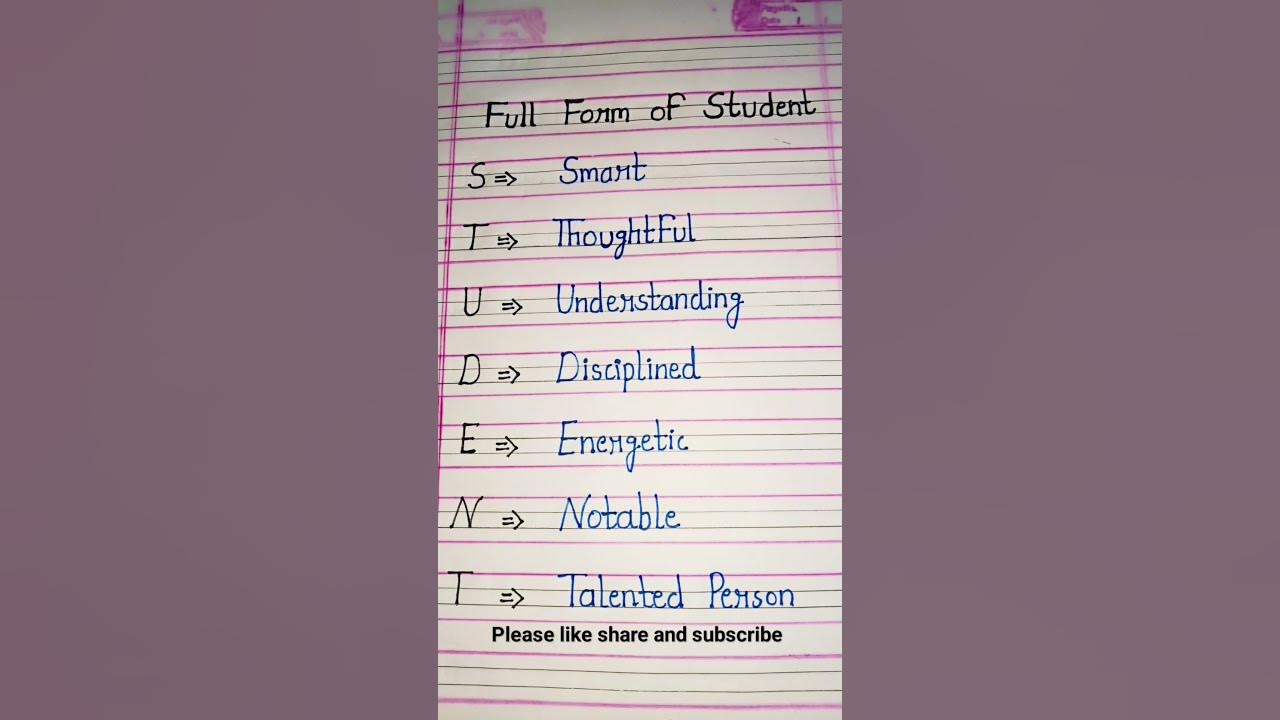 Page No.
Date
Full Form of Student
S => Smart
T => Thoughtful
U => Understanding
D => Disciplined
E => Energetic
N => Notable
T => Talented Person
Please like share and subscribe